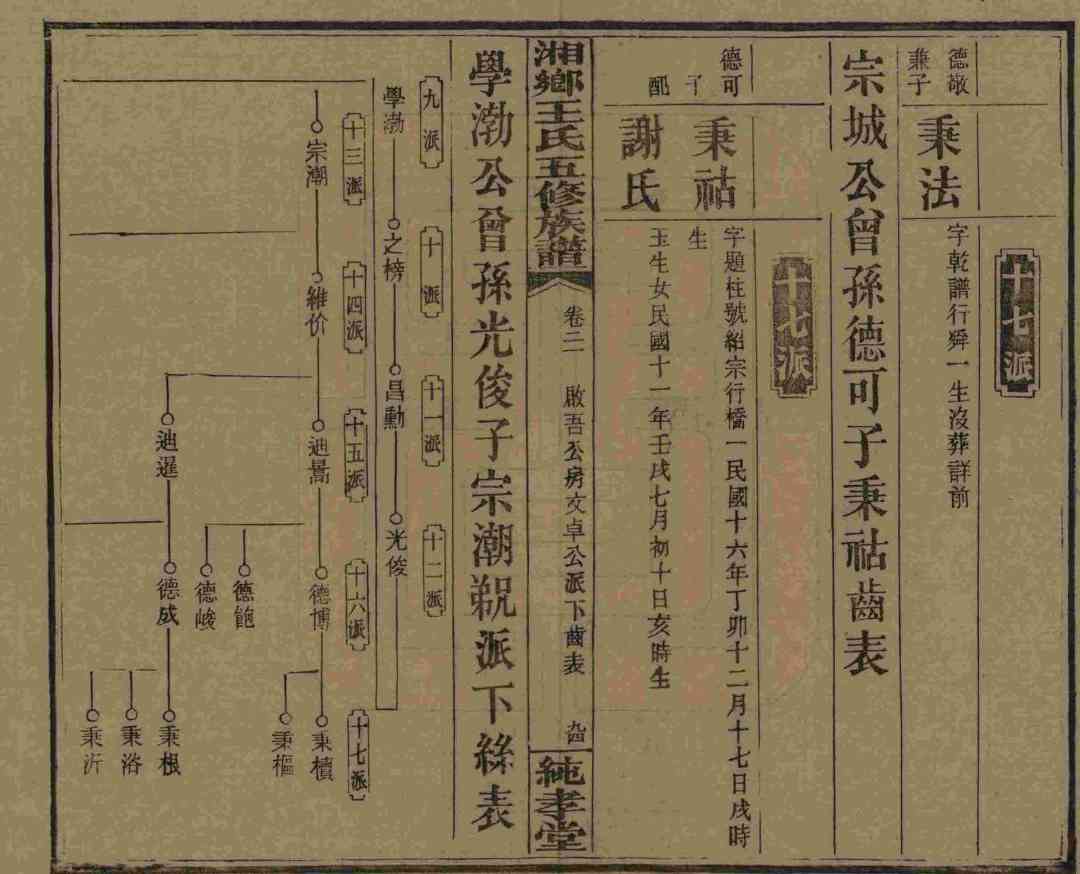 十七派
德敬
兼子
秉法
字乾譜行舜一生沒葬詳前
宗城公曾孫德可子秉祜齒表
十七派
德可
子
秉祜
字題柱號紹宗行橋一民國十六年丁卯十二月十七日戌時
生
配
謝氏
玉生女民國十一年壬戌七月初十日亥時生
湘鄉王氏五修族譜
卷二一
啟吾公房文卓公派下齒表
純孝堂
學渤公曾孫光俊子宗潮派下絲表
九派
十派
十一派
十二派
學渤
之榜
昌勳
光俊
十三派
十四派
十五派
十六派
十七派
宗潮
維价
迪暠
德博
秉樻
秉樞
德飽
德峻
迪暹
德威
秉根
秉浴
秉沂